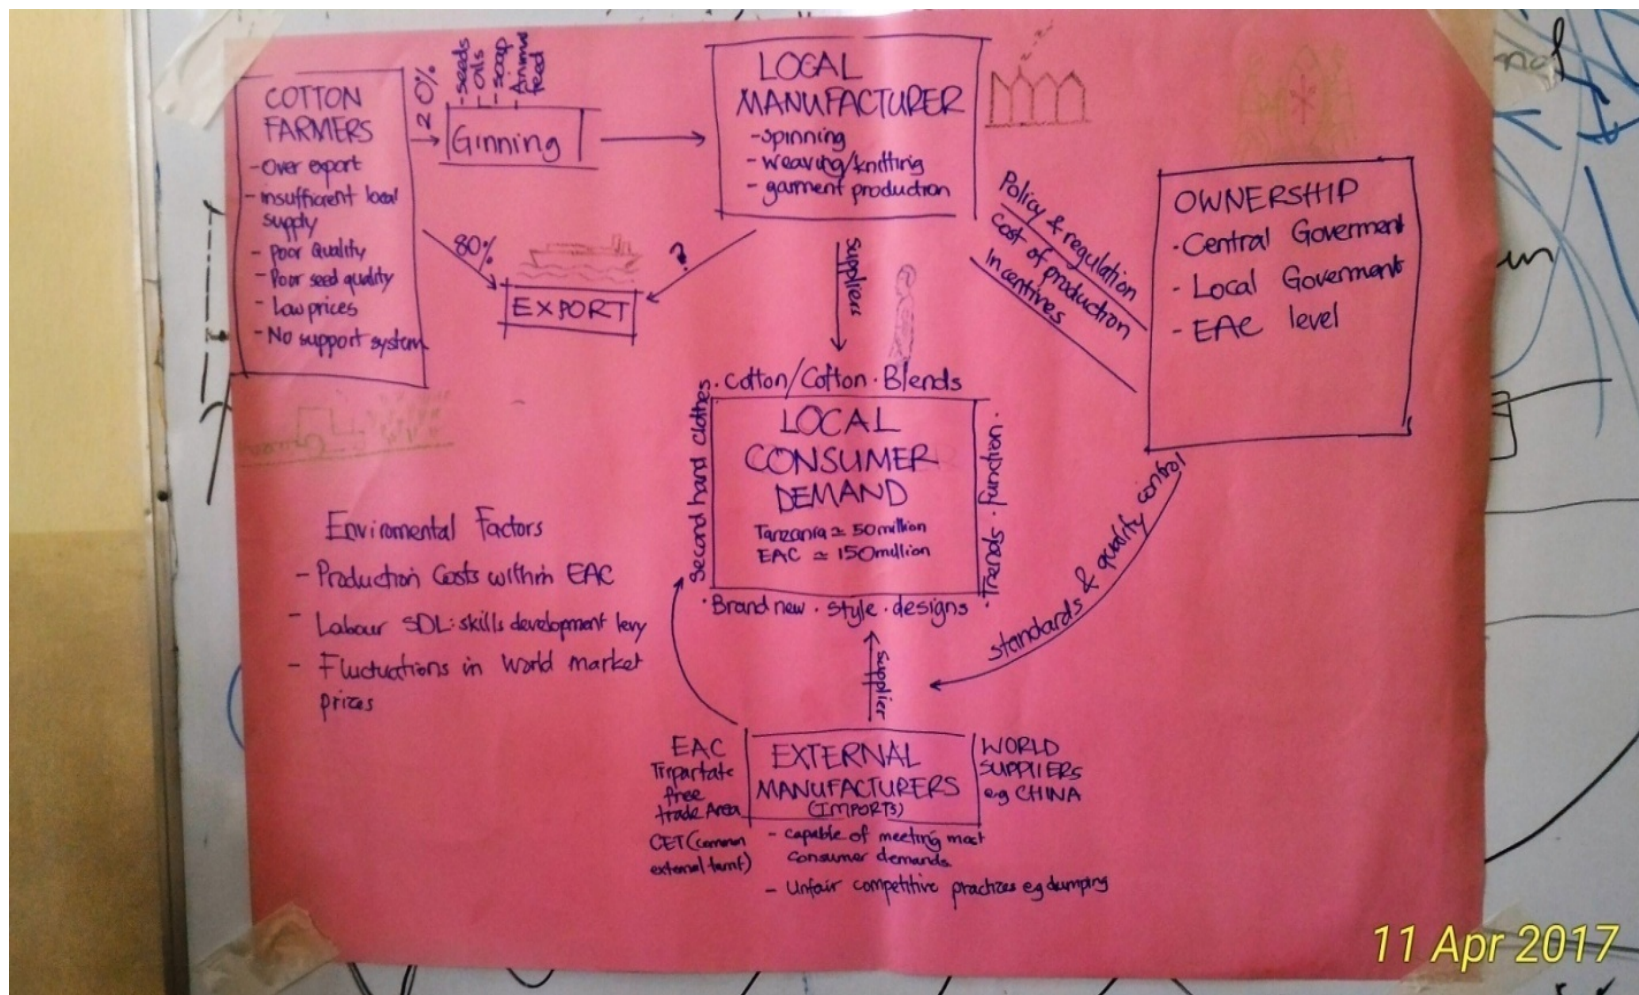 COTTON
FARMERS
-Over export
-insufficient local
supply
- Poor Quality
- Poor seed quality
- Low prices
- No support system
20%
-seeds
-oils
-soap
-Animal
feed
Ginning
80%
EXPORT
?
LOCAL
MANUFACTURER
-spinning
- weaving/knitting
- garment production
Policy & regulation
Cost of production
Incentives
OWNERSHIP
·Central Goverment
- Local Goverment
- EAC level
Suppliers
·Cotton/Cotton·Blends
second hand clothes
LOCAL
CONSUMER
DEMAND
Tanzania ≃ 50million
EAC ≃ 150million
·Trends · Function·
·Brand new · style · designs
standards & quality control
Supplier
Enviromental Factors
- Production Costs within EAC
- Labour SDL: skills development levy
- Fluctuations in World market
prices
EAC
Tripartate
free
trade Area
CET (common
external tarrif)
EXTERNAL
MANUFACTURERS
(IMPORTS)
WORLD
SUPPLIERS
e.g CHINA
- capable of meeting most
consumer demands
- Unfair competitive practices eg dumping
11 Apr 2017